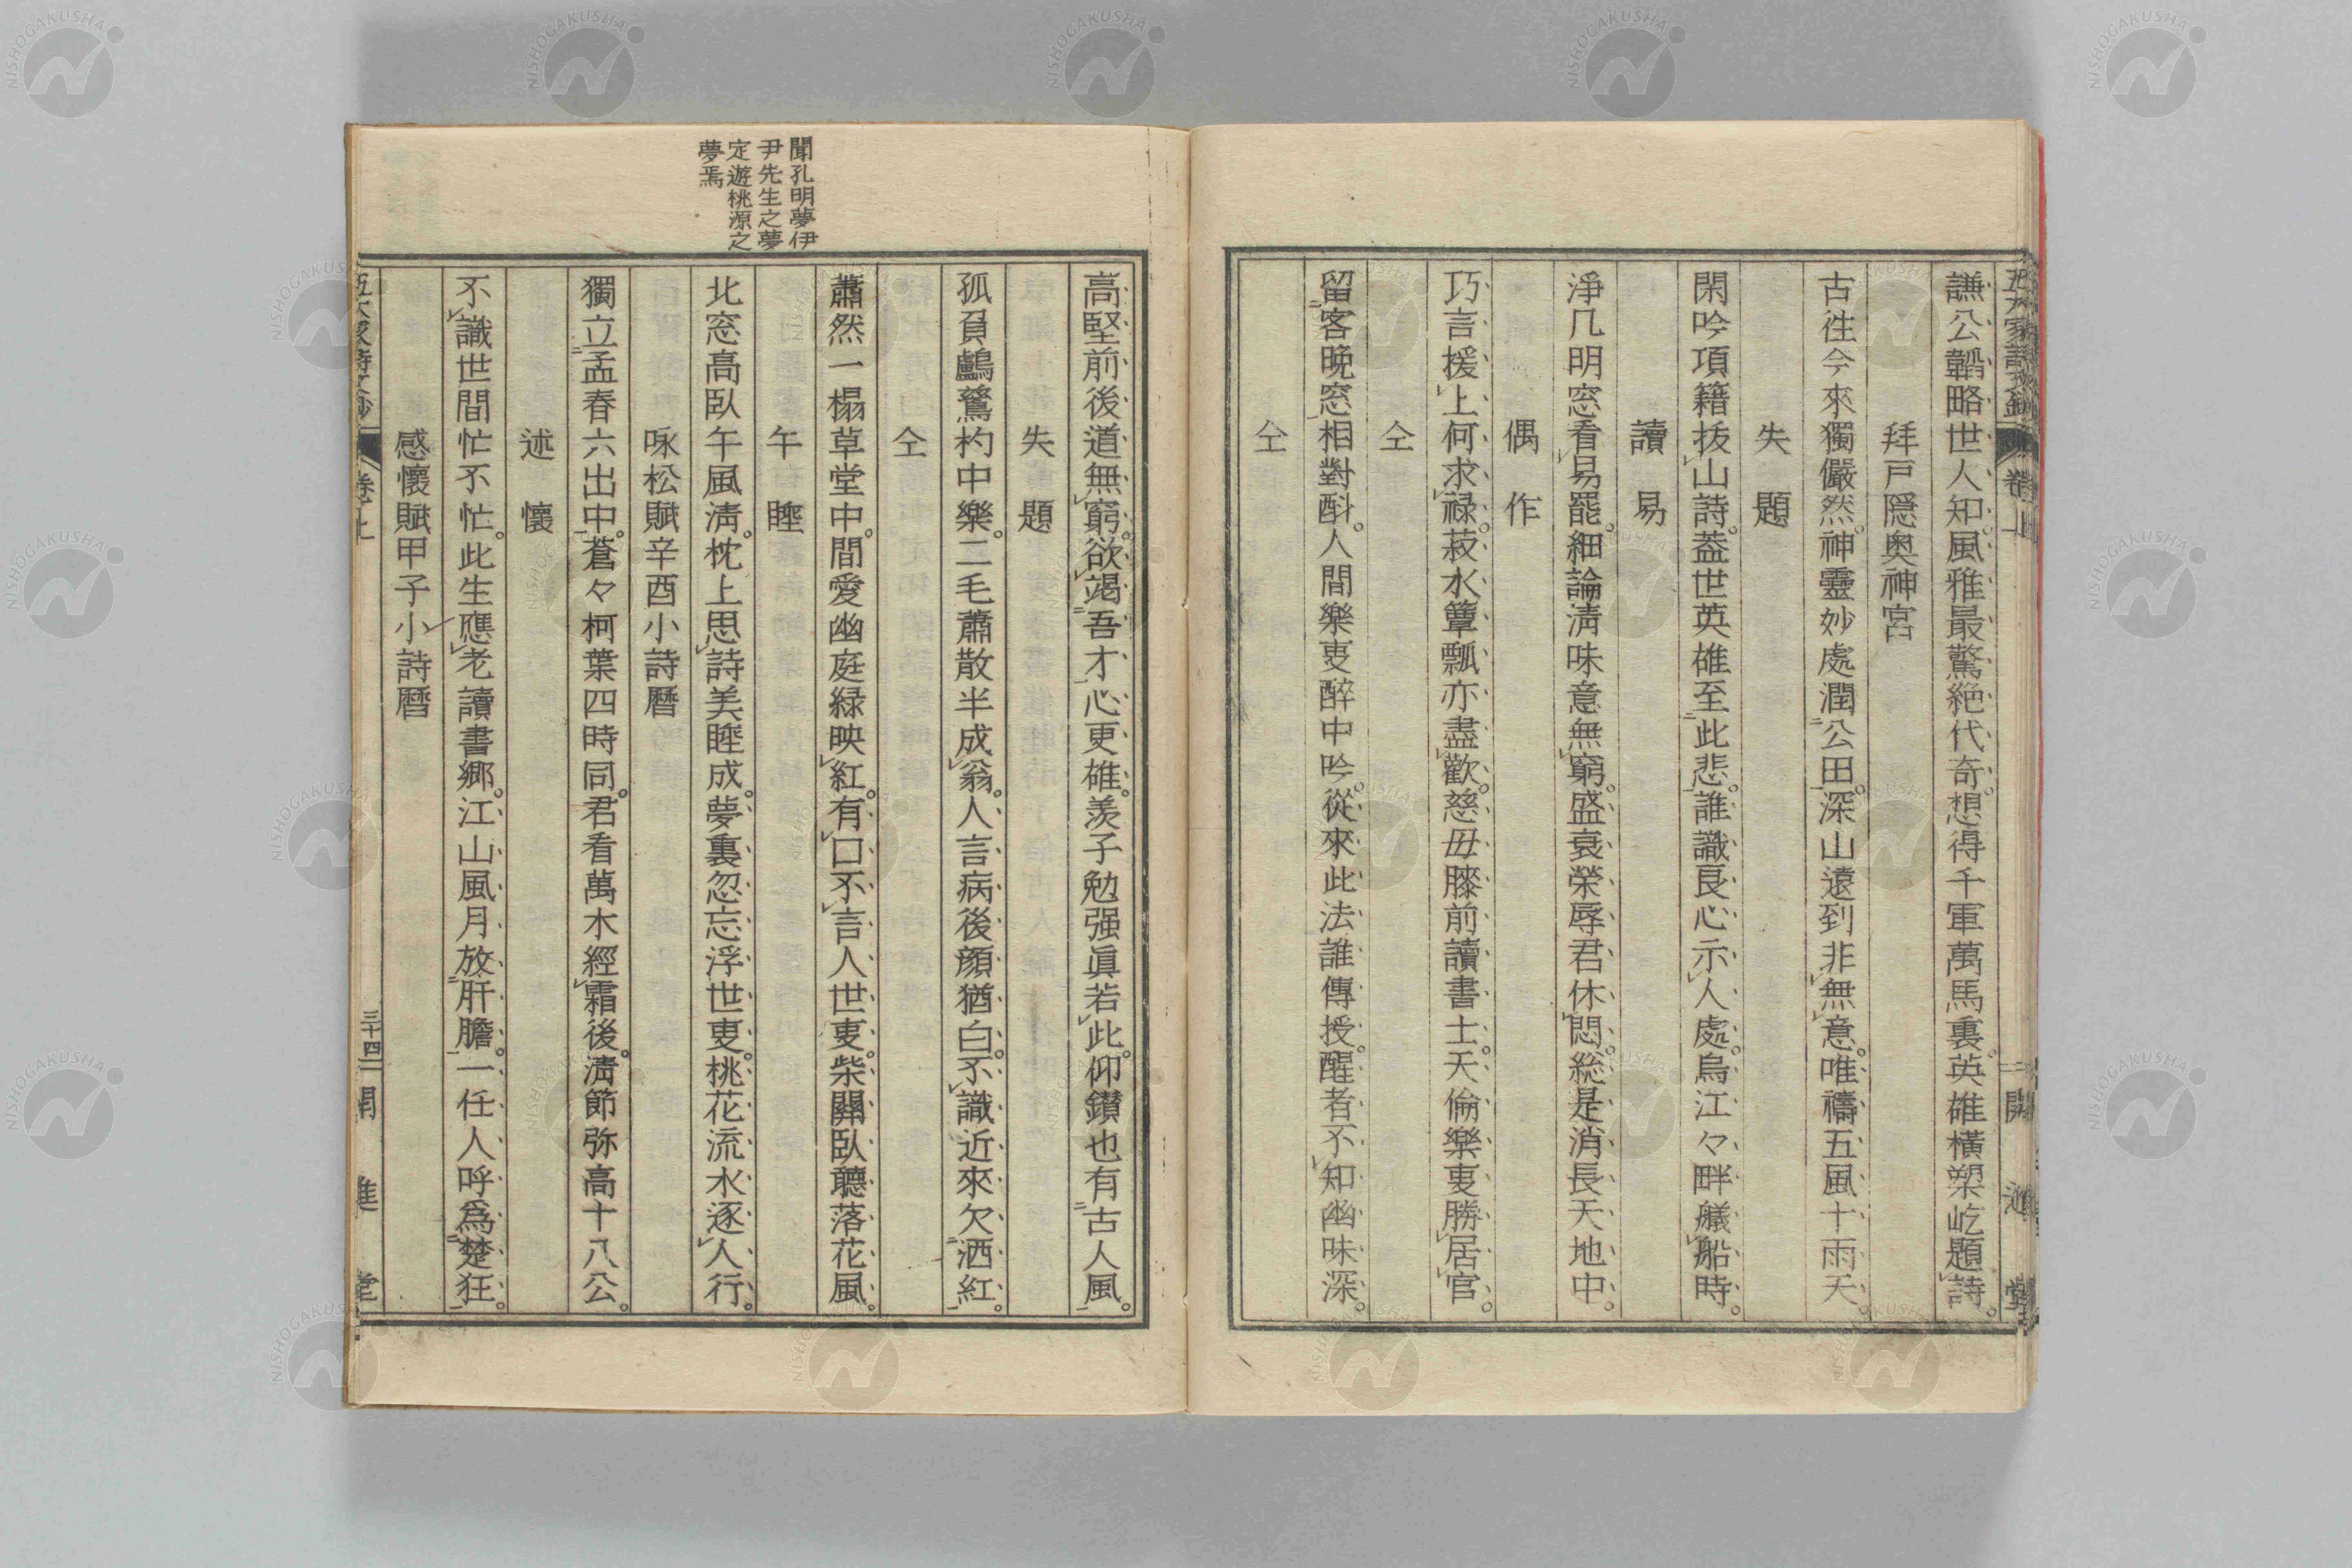 謙公韜略世人知。風雅最驚絶代奇。想得千軍萬馬裏。英雄横槊屹題詩。
拜戸隱奥神宮
古徃今來獨儼然。神靈妙處潤公田。深山遠到非無意。唯禱五風十雨天
失題
閑吟項籍拔山詩。蓋世英雄至此悲。誰識良心示人處。烏江々畔艤船時。
讀易
淨几明窓看易罷。細論淸味意無窮。盛衰榮辱君休悶。総是消長天地中。
偶作
巧言援上何求禄。菽水簞瓢亦盡歡。慈毋膝前讀書士。天倫樂叓勝居官。
仝
留客晩窓相對酙。人間樂叓醉中吟。從來此法誰傳授。醒者不知幽味深。
仝
高堅前後道無窮。欲竭吾才心更雄。羨子勉强眞若此。仰鑚也有古人風。
失題
孤負鸕鶿杓中樂。二毛蕭散半成翁。人言病後顔猶白。不識近來欠洒紅。
仝
蕭然一榻草堂中。間愛幽庭緑映紅。有口不言人世叓。柴關臥聽落花風。
午睡
聞孔明夢伊
尹先生之夢
定遊桃源之
夢焉
北窓高臥午風淸。枕上思詩美睡成。夢裏忽忘浮世叓。桃花流水逐人行。
咏松賦辛酉小詩曆
獨立孟春六出中。蒼々柯葉四時同。君看萬木經霜後。淸節弥高十八公。
述懷
不識世間忙不忙。此生應老讀書郷。江山風月放肝膽。一任人呼爲楚狂。
感懷賦甲子小詩曆
卷上
三十四
開進堂